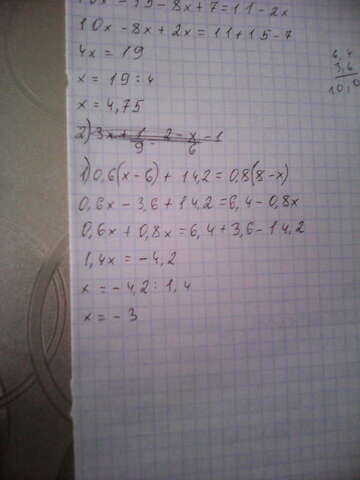 10x - 15 - 8x + 7 = 11 - 2x
10x - 8x + 2x = 11 + 15 - 7
4x = 19
x = 19 : 4
x = 4,75
6,4
3,6
10,0
2) 3x + 1 / 9 - 2 - x / 6 - 1
1) 0,6(x - 6) + 14,2 = 0,8(8 - x)
0,6x - 3,6 + 14,2 = 6,4 - 0,8x
0,6x + 0,8x = 6,4 + 3,6 - 14,2
1,4x = - 4,2
x = - 4,2 : 1,4
x = - 3